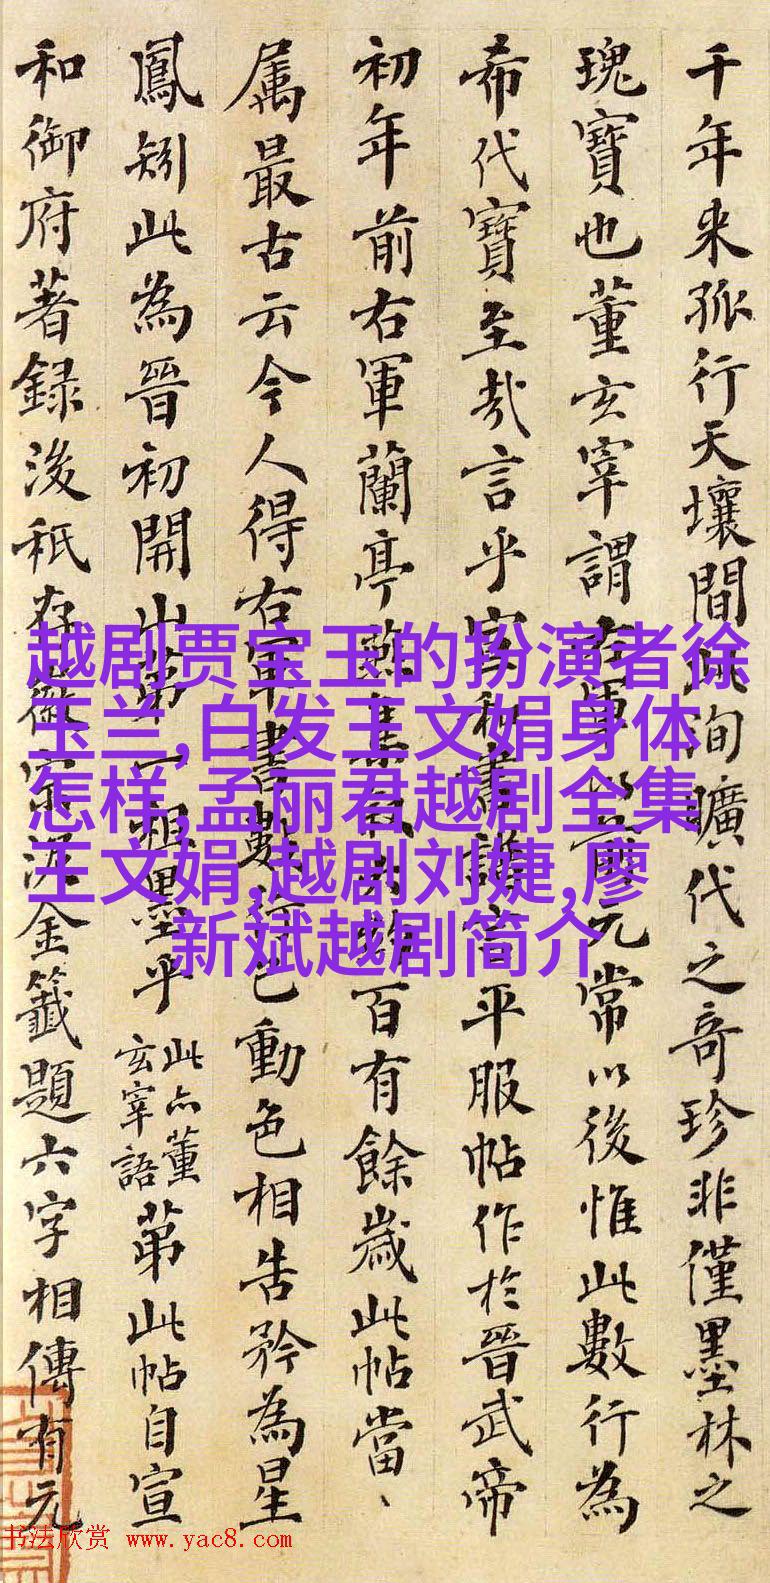 千年来孤行天壤間此洵曠代之奇珍非僅墨林之
瑰寶也董玄宰謂右軍以前元常以後惟此數行為
希代寶至哉言乎宣和書譜言平服帖作於晉武帝
初年前右軍蘭亭燕集百有餘歲此帖當、
属最古云今人得右軍書數行已動色相告矜為星
鳳矧此為晉初開山第一祖墨乎此亦董玄宰語第此帖自宣
和御府著録後祇存徽宗泥金籤題六字相傳有元
越剧贾宝玉的扮演者徐
玉兰,白发王文娟身体
怎样,孟丽君越剧全集
王文娟,越剧刘婕,廖
新斌越剧简介
书法欣赏 www.yac8.com